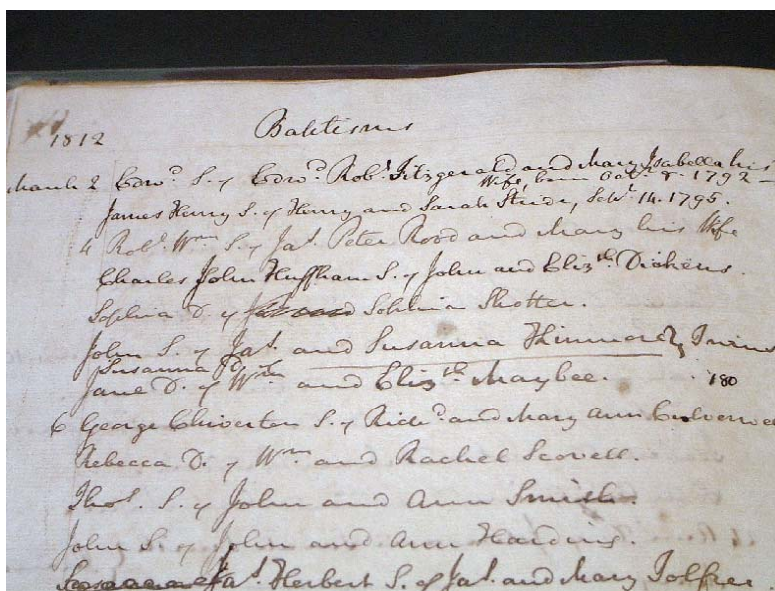 1812 Baptisms
March 2 Edwd. S. of Edwd. Robt. Fitzgerald and Mary Isabella his
Wife, born Octr. 8. 1792
James Henry S. of Henry and Sarah Steide, Sepr. 14. 1795.
4 Robt. Wm. S. of Jas. Peter Rood and Mary his Wife
Charles John Huffham S. of John and Elizth. Dickens.
Sophia D. of Sophia Shotter.
John S. of Jas. and Susanna Twins
Susanna D.
Jane D. of Wm. and Elizth. Maybee. 180
6 George Chiverton S. of Richd. and Mary Ann
Rebecca D. of Wm. and Rachel Scovell.
Thos. S. of John and Ann Smith.
John S. of John and Ann Harding.
Jas. Herbert S. of Jas. and Mary